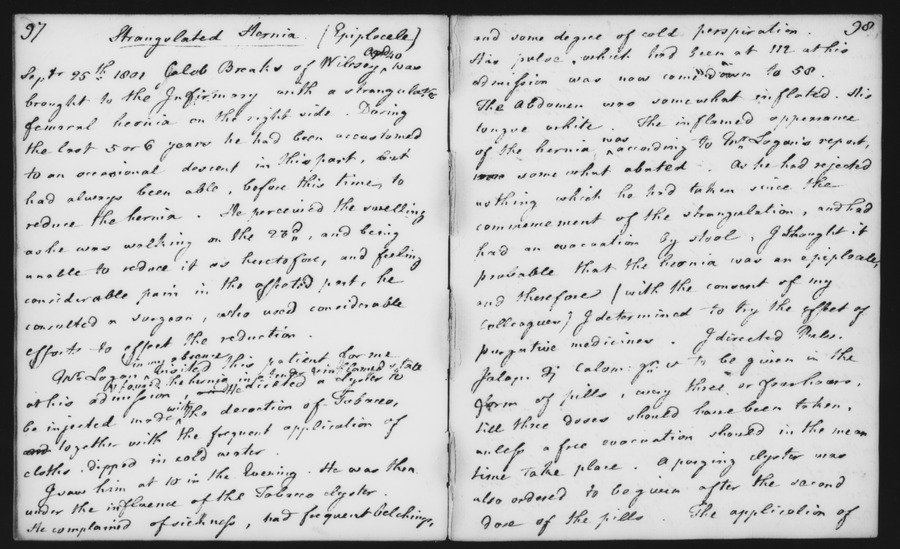 97
Strangulated Hernia. (Epiplocele)
Aged 40
Septr 25th 1801 Caleb Breaks of Wibsey, was
brought to the Infirmary with a strangulated
femoral hernia on the right side. During
the last 5 or 6 years he had been accustomed
to an occasional descent in this part, but
had always been able, before this time, to
reduce the hernia. He perceived the swelling
as he was walking on the 23d, and being
unable to reduce it as heretofore, and feeling
considerable pain in the affected part, he
consulted a surgeon, who used considerable
efforts to effect the reduction.
in my absence
Mr. Logan, visited this patient for me
& found the hernia in a tender & inflamed state
at his admission He directed a clyster to
be injected made with the decoction of Tobacco,
and together with the frequent application of
cloths dipped in cold water.
I saw him at 10 in the Evening. He was then
under the influence of the Tobacco clyster.
He complained of sickness, had frequent belchings,
98
and some degree of cold perspiration.
His pulse, which had been at 112 at his
admission was now come down to 58.
The Abdomen was somewhat inflated. His
tongue white. The inflamed appearance
of the hernia was according to Mr Logan's report,
was somewhat abated. As he had rejected
nothing which he had taken since the
commencement of the strangulation, and had
had an evacuation by stool, I thought it
probable that the hernia was an epiplocele,
and therefore (with the consent of my
Colleagues) I determined to try the effect of
purgative medicines. I directed Pulv.
Jalap. Calom. gr. to be given in the
form of pills, every three or four hours,
till three doses should have been taken,
unless a free evacuation should in the mean
time take place. A purging clyster was
also ordered to be given after the second
dose of the pills. The application of